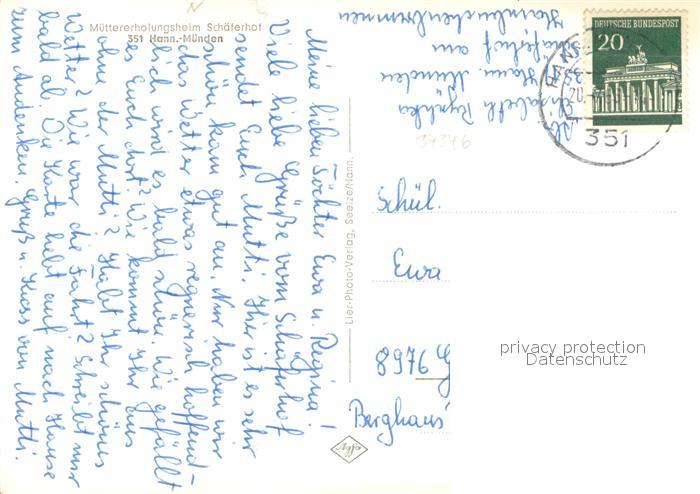 Müttererholungsheim Schäferhof
351 Hann.-Münden
Meine lieben Töchter Ewa u. Regina!
Viele liebe Grüße vom Schäferhof
sendet Euch Mutti. Hier ist es sehr
schön kam gut an. Nur haben wir
das Wetter etwas regnerisch hoffent-
lich wird es bald schön. Wie gefällt
es Euch dort? Wie kommt Ihr aus
ohne der Mutti? Habt Ihr schönes
Wetter? Wie war die Fahrt? Schreibt mir
bald ab. Die Karte hebt auf nach Hause
zum Andenken. Gruß u. Kuss von Mutti.
Lier-Photo-Verlag, Seelze/Hann.
Agfa
Elisabeth
Hann. Münden
Schäferhof am
DEUTSCHE BUNDESPOST
20
351
34346
Schül.
Ewa
8976
Berghaus
privacy protection
Datenschutz